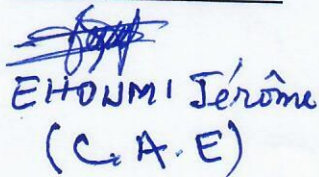 EHOUMI Jérôme
(C.A.E)